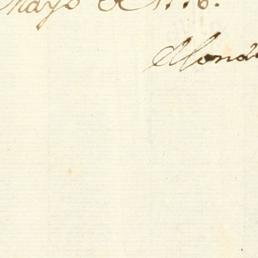 Mayo de 1776.
Mond